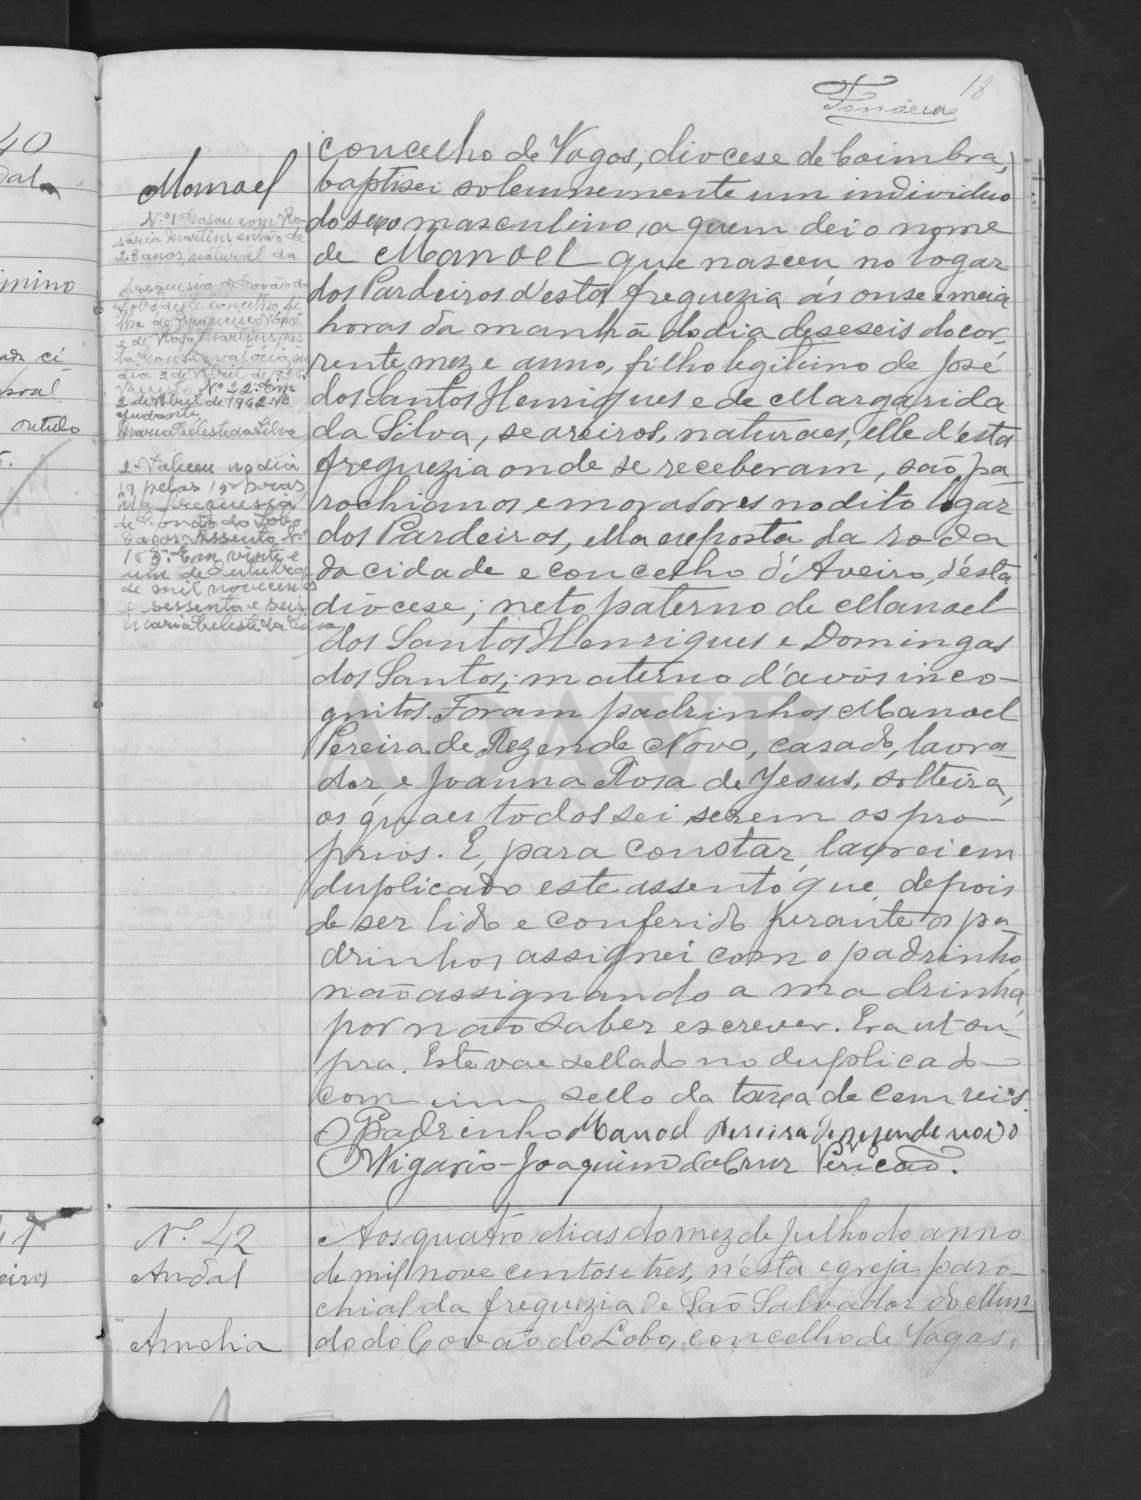 18
Fonseca
40
Manoel
Nº 1 Casou com Ro-
saria Martins, então de
28 anos, natural da
freguesia de Covão do
Lobo, deste concelho, fi-
lha de Francisco
e de Rosa Martins, nes-
ta Conservatória, no
dia 3 de Abril de 1926.
Nº 22. Em
2 de Abril de 1962. A
Ajudante
Maria Celeste da Silva
2- Faleceu no dia
19 pelas 15 horas
na freguesia
de Covão do Lobo
Vagos. Assento Nº
163. Em vinte e
um de Outubro
de mil novecentos
e sessenta e seis.
Maria Celeste da Silva
concelho de Vagos, diocese de Coimbra,
baptisei solemnemente um individuo
do sexo masculino, a quem dei o nome
de Manoel que nasceu no logar
dos Pardeiros d'esta freguezia ás onse e meia
horas da manhã do dia deseseis do cor-
rente mez e anno, filho legitimo de José
dos Santos Henriques e de Margarida
da Silva, seareiros, naturaes, elle d'esta
freguezia onde se receberam, são pa-
rochianos, e moradores no dito logar
dos Pardeiros, ella exposta da roda
da cidade e concelho d'Aveiro, d'ésta
diocese; neto paterno de Manoel
dos Santos Henriques e Domingas
dos Santos; materno d'avós inco-
gnitos. Foram padrinhos Manoel
Pereira de Rezende Novo, casado, lavra-
dor, e Joanna Rosa de Jesus, solteira,
os quaes todos sei serem os pro-
prios. E, para constar, lavrei em
duplicado este assento que, depois
de ser lido e conferido perante os pa-
drinhos assignei com o padrinho,
não assignando a madrinha,
por não saber escrever. Era ut su-
pra. Este vae sellado no duplicado
com um sello da taxa de cem reis.
O Padrinho Manoel Pereira de rezende novo
O Vigario - Joaquim da Cruz Pericão.
Nº 42
Andal
Amelia
Aos quatro dias do mez de Julho do anno
de mil nove centos e tres, n'ésta egreja paro-
chial da freguezia de São Salvador do Mun-
do do Covão do Lobo, concelho de Vagos,